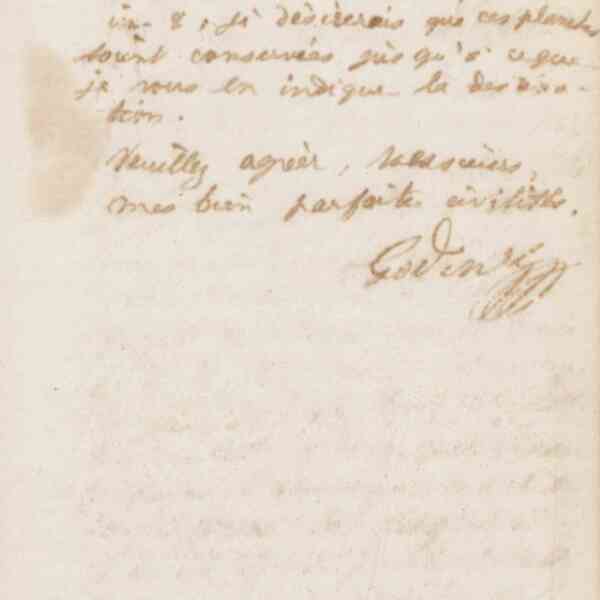 je désirerais que ces plantes
soient conservées jusqu'à ce que
je vous en indique la destina-
tion.
Veuillez agréer, Messieurs,
mes bien parfaites civilités.